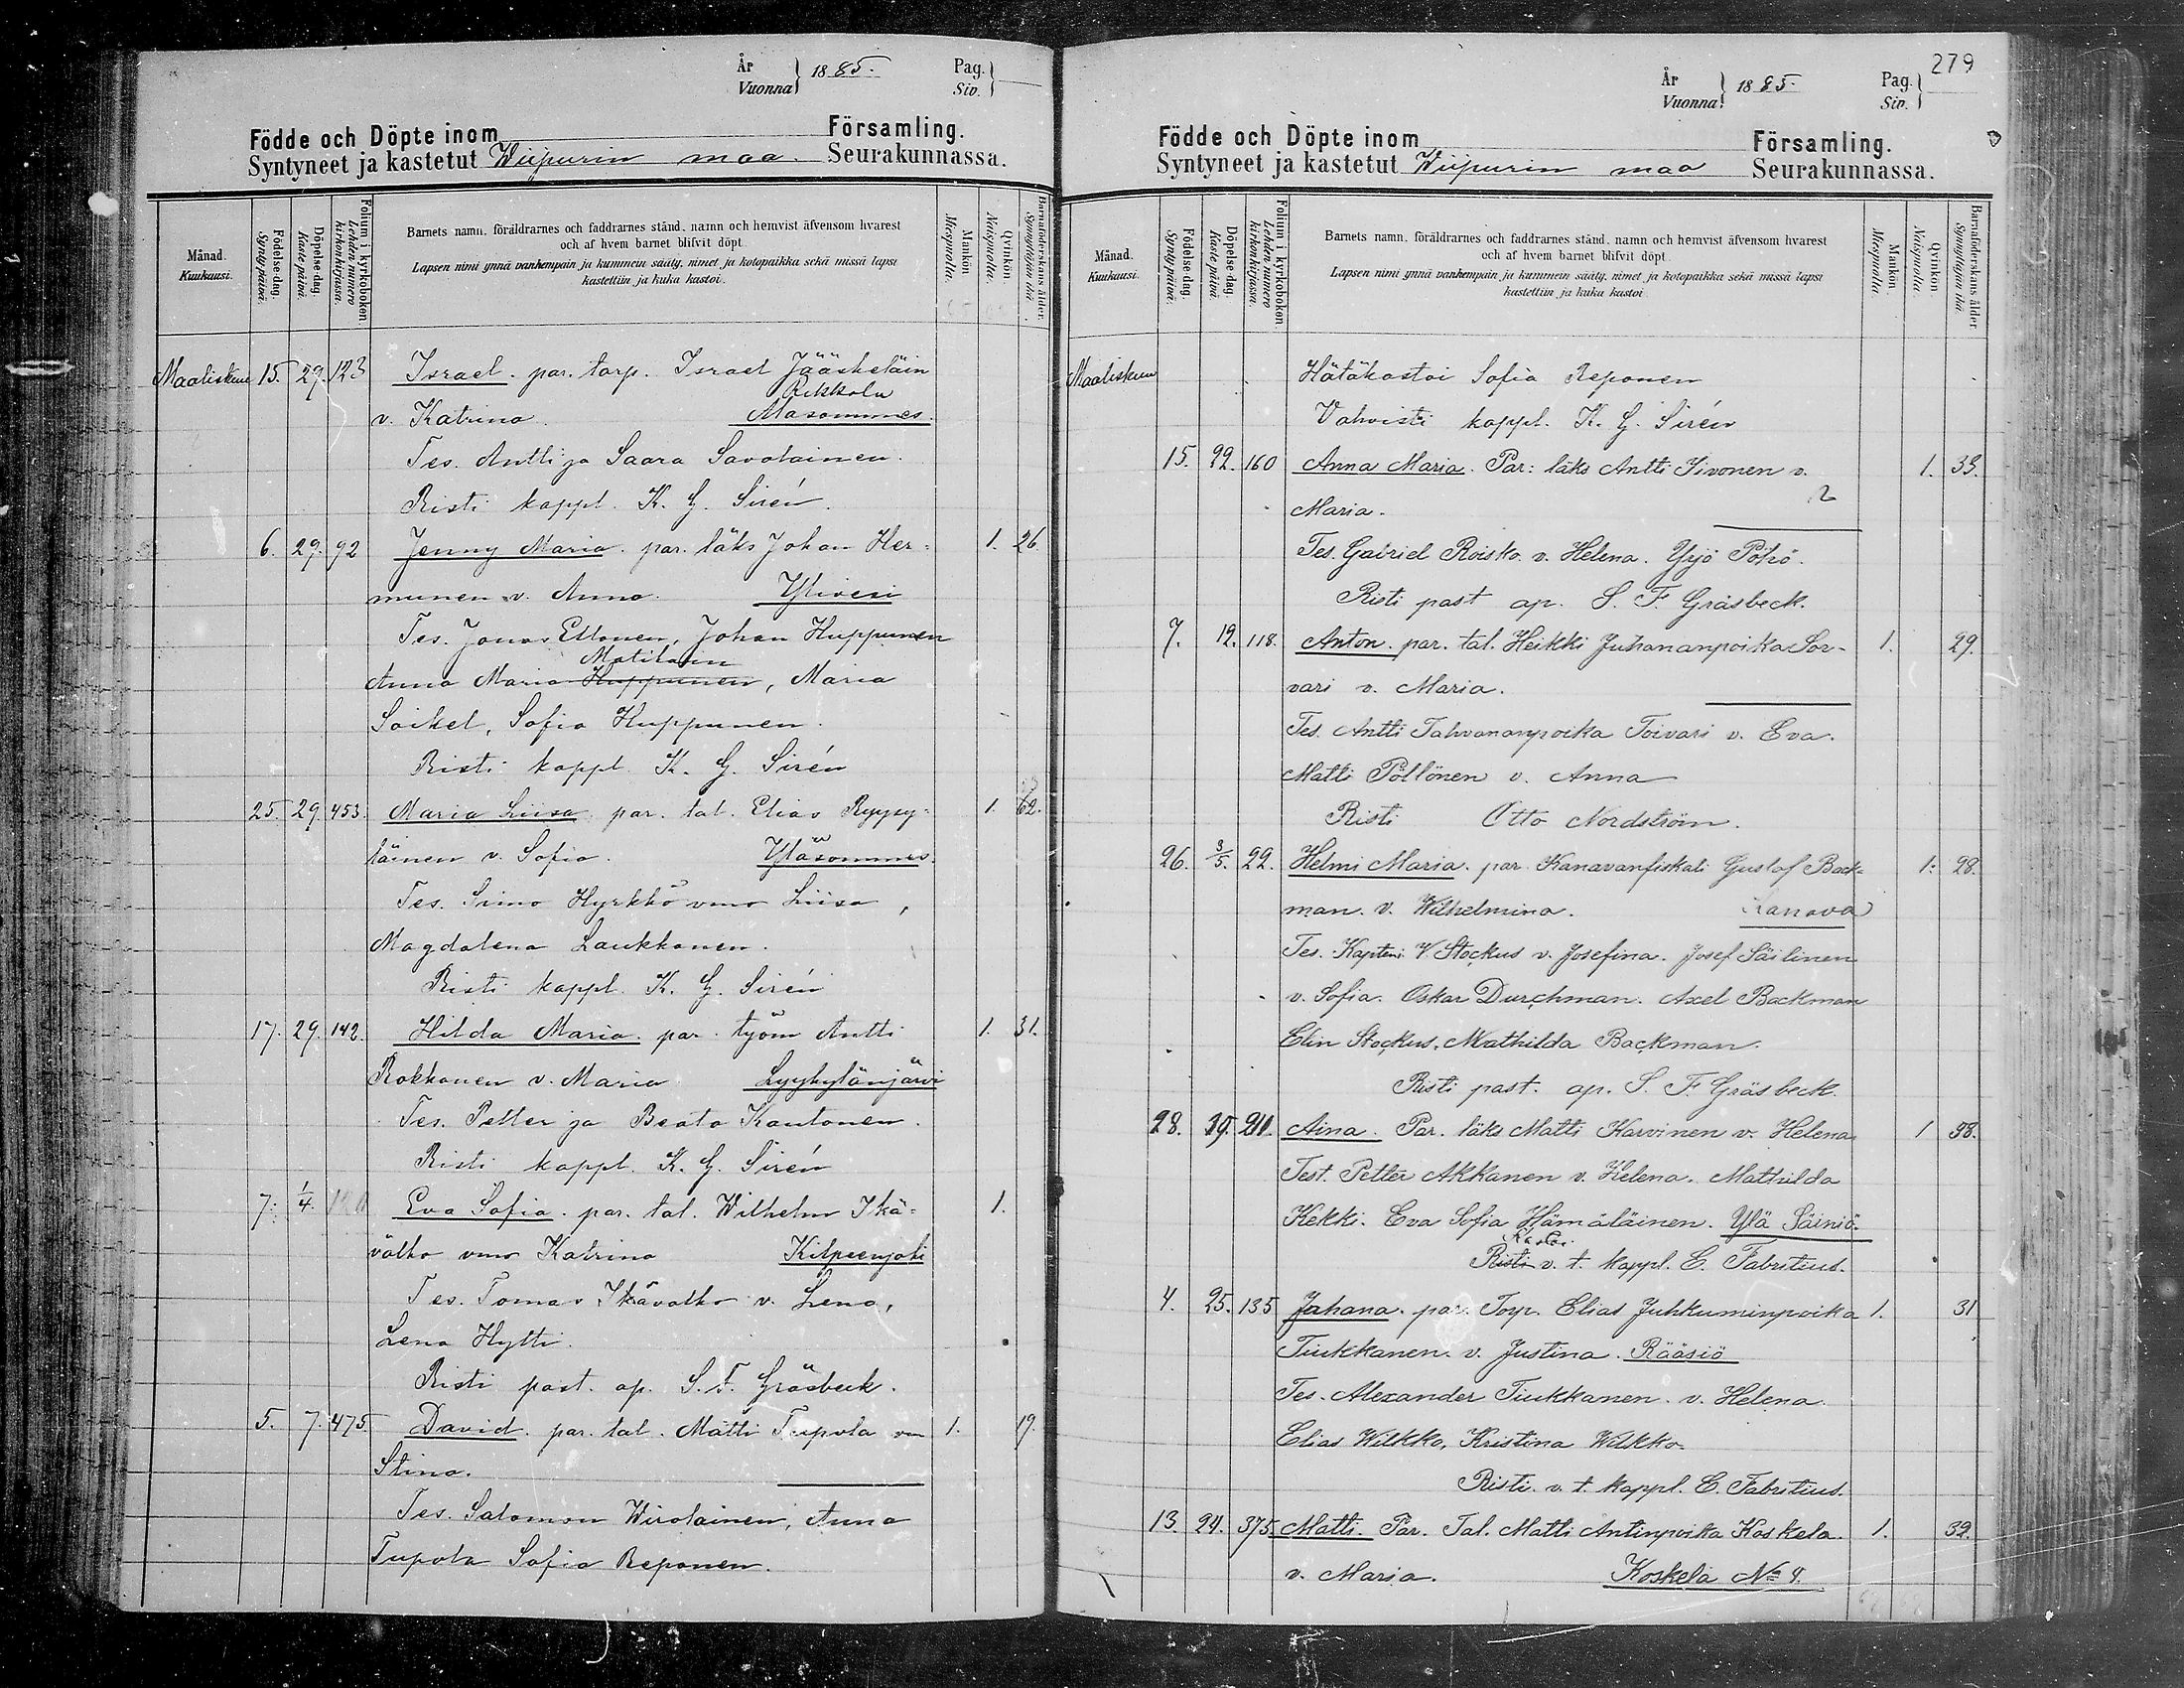 År
Vuonna } 1885.
Pag.
Siv.
Födde och Döpte inom Församling.
Syntyneet ja kastetut Wiipurin maa. Seurakunnassa.
Månad.
Kuukausi.
Födelse-dag.
Synty päivä.
Döpelse-dag.
Kaste päivä.
Folium i kyrkoboken.
Lehden numero kirkonkirjassa.
Barnets namn, föräldrarnes och faddrarnes stånd, namn och hemvist äfvensom hvarest
och af hvem barnet blifvit döpt.
Lapsen nimi ynnä vanhempain ja kummein sääty, nimet ja kotopaikka sekä missä lapsi
kastettiin ja kuka kastoi.
Mankön.
Miespuolia.
Qvinkön.
Naispuolia.
Barnaföderskans ålder.
Synnyttäjän ikä.
Maaliskuu 15. 29. 123 Israel. par. torp. Israel Jääskeläin
Rekkola
v. Katrina. Alasommes.
Tes. Antti ja Saara Savolainen.
Risti kappl. K. G. Sirén.
6. 29. 92 Jenny Maria. par. läks Johan Her= 1. 26
munen v. Anna. Ylivesi
Tes. Jonas Ellonen, Johan Huppunen
Matilain
Anna Maria Huppunen, Maria
Soikel, Sofia Huppunen.
Risti kappl. K. G. Sirén
25. 29. 453. Maria Liisa par. tal. Elias Ryypy= 1. 62.
läinen v. Sofia. Yläsommes.
Tes. Simo Hyrkkö vmo Liisa,
Magdalena Laukkanen.
Risti kappl. K. G. Sirén
17. 29. 142. Hilda Maria. par. työm Antti 1. 31.
Rokkanen v. Maria Lyykylänjärvi
Tes. Petter ja Beata Kautonen.
Risti kappl. K. G. Sirén
7. 1/4. Eva Sofia. par. tal. Wilhelm Ikä= 1.
valko vmo Katrina Kilpeenjoki
Tes. Tomas Ikävalko v. Lena,
Lena Hytti.
Risti past. ap. S. F. Gräsbeck.
5. 7. 475. David. par. tal. Matti Tupola vm 1. 19.
Stina.
Tes. Salomon Wirolainen, Anna
Tupola Sofia Reponen.
279
År
Vuonna } 1885.
Pag.
Siv.
Födde och Döpte inom Församling.
Syntyneet ja kastetut Wiipurin maa Seurakunnassa.
Månad.
Kuukausi.
Födelse-dag.
Synty päivä.
Döpelse-dag.
Kaste päivä.
Folium i kyrkoboken.
Lehden numero kirkonkirjassa.
Barnets namn, föräldrarnes och faddrarnes stånd, namn och hemvist äfvensom hvarest
och af hvem barnet blifvit döpt.
Lapsen nimi ynnä vanhempain ja kummein sääty, nimet ja kotopaikka sekä missä lapsi
kastettiin ja kuka kastoi.
Mankön.
Miespuolia.
Qvinkön.
Naispuolia.
Barnaföderskans ålder.
Synnyttäjän ikä
Maaliskuu Hätäkastoi Sofia Reponen
Vahvisti kappl. K. G. Sirén
15. 22. 160 Anna Maria. Par: läks Antti Iivonen v. 1. 33.
Maria.
Tes. Gabriel Roisko. v. Helena. Yrjö Pötrö.
Risti past ap. S. F. Gräsbeck.
7. 12. 118. Anton. par. tal. Heikki Juhananpoika Sor- 1. 29.
vari v. Maria.
Tes. Antti Tahvananpoika Toivari v. Eva.
Matti Pöllönen v. Anna
Risti Otto Nordström.
26. 3/5. 22. Helmi Maria. par. Kanavanfiskali Gustaf Back= 1. 28.
man. v. Wilhelmina. Kanava
Tes. Kapteni V. Stockus v. Josefina. Josef Säilinen
v. Sofia. Oskar Durchman. Axel Backman
Elin Stockus. Mathilda Backman.
Risti past. ap. S. F. Gräsbeck.
28. 29. 211. Aina. Par. läks Matti Karvinen v. Helena 1 38.
Test. Petter Akkanen v. Helena. Mathilda
Kekki. Eva Sofia Hämäläinen. Ylä Säiniö.
Kastoi
Risti v. t. kappl. E. Fabritius.
4. 25. 135 Juhana. par. Torp. Elias Juhkuminpoika 1. 31
Tiukkanen. v. Justina. Rääsiö
Tes. Alexander Tiukkanen. v. Helena.
Elias Wilkko, Kristina Wilkko.
Risti. v. t. kappl. E. Fabritius.
13. 24. 375 Matti. Par. Tal. Matti Antinpoika Koskela. 1. 32.
v. Maria. Koskela No 4.